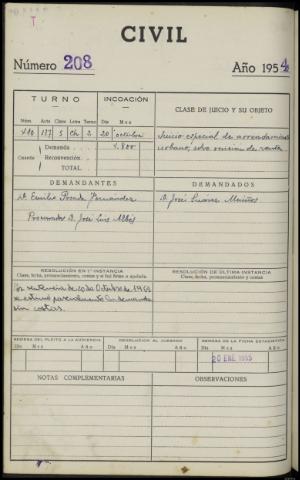 T
CIVIL
Número 208 Año 1954
TURNO INCOACIÓN CLASE DE JUICIO Y SU OBJETO
Núm. Acta Clase Letra Turno Día Mes
410 117 5 Ch 2 20 octubre
Juicio especial de arrendamientos
urbanos, sobre revisión de renta
Cuantía Demanda 4.800
Reconvención
TOTAL
DEMANDANTES DEMANDADOS
D. Emilio Posada Fernández D. José Suárez Muñiz
Procurador D. José Luis
RESOLUCIÓN EN 1.ª INSTANCIA RESOLUCIÓN DE ÚLTIMA INSTANCIA
Clase, fecha, pronunciamientos, costas y si fué firme o apelada. Clase, fecha, pronunciamiento y costas
Por sentencia de 20 de Octubre de
se estimó parcialmente la demanda
sin costas.
REMESA DEL PLEITO A LA AUDIENCIA DEVOLUCIÓN AL JUZGADO REMESA DE LA FICHA ESTADÍSTICA
Día Mes Año Día Mes Año Día Mes Año
20 ENE 1955
NOTAS COMPLEMENTARIAS OBSERVACIONES